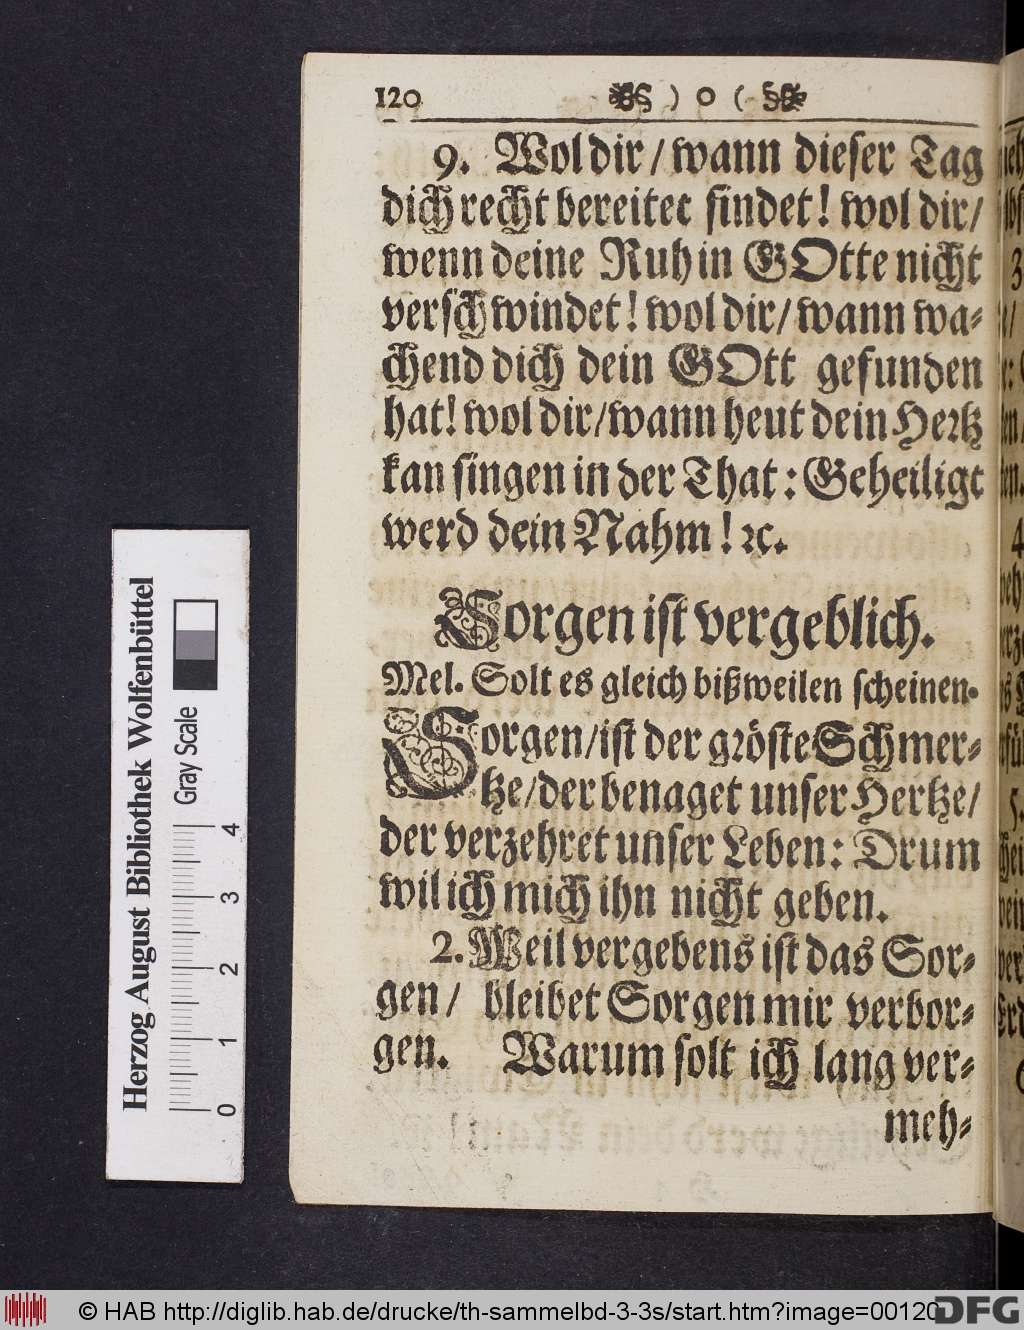 120 ) o (
9. Wol dir / wann dieser Tag
dich recht bereitet findet! wol dir/
wenn deine Ruh in GOtte nicht
verschwindet! wol dir/ wann wa-
chend dich dein GOtt gefunden
hat! wol dir/wann heut dein Hertz
kan singen in der That: Geheiligt
werd dein Nahm! ꝛc.
Sorgen ist vergeblich.
Mel. Solt es gleich bißweilen scheinen.
Sorgen/ist der gröste Schmer-
tze/der benaget unser Hertze/
der verzehret unser Leben: Drum
wil ich mich ihn nicht geben.
2. Weil vergebens ist das Sor-
gen/ bleibet Sorgen mir verbor-
gen. Warum solt ich lang ver-
meh-
Herzog August Bibliothek Wolfenbüttel
Gray Scale
0 1 2 3 4
© HAB http://diglib.hab.de/drucke/th-sammelbd-3-3s/start.htm?image=00120
DFG